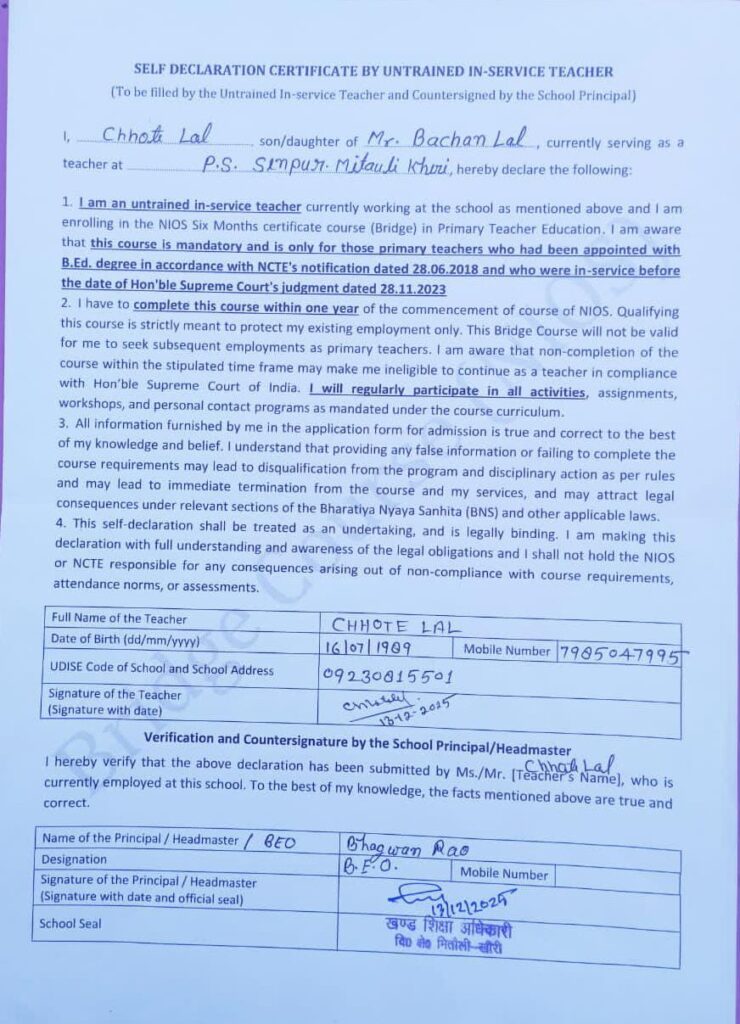 SELF DECLARATION CERTIFICATE BY UNTRAINED IN-SERVICE TEACHER
(To be filled by the Untrained In-service Teacher and Countersigned by the School Principal)
I, Chhote Lal son/daughter of Mr. Bachan Lal, currently serving as a
teacher at P.S. Senpur. Mitauli Kheri, hereby declare the following:
1. I am an untrained in-service teacher currently working at the school as mentioned above and I am
enrolling in the NIOS Six Months certificate course (Bridge) in Primary Teacher Education. I am aware
that this course is mandatory and is only for those primary teachers who had been appointed with
B.Ed. degree in accordance with NCTE's notification dated 28.06.2018 and who were in-service before
the date of Hon'ble Supreme Court's judgment dated 28.11.2023
2. I have to complete this course within one year of the commencement of course of NIOS. Qualifying
this course is strictly meant to protect my existing employment only. This Bridge Course will not be valid
for me to seek subsequent employments as primary teachers. I am aware that non-completion of the
course within the stipulated time frame may make me ineligible to continue as a teacher in compliance
with Hon'ble Supreme Court of India. I will regularly participate in all activities, assignments,
workshops, and personal contact programs as mandated under the course curriculum.
3. All information furnished by me in the application form for admission is true and correct to the best
of my knowledge and belief. I understand that providing any false information or failing to complete the
course requirements may lead to disqualification from the program and disciplinary action as per rules
and may lead to immediate termination from the course and my services, and may attract legal
consequences under relevant sections of the Bharatiya Nyaya Sanhita (BNS) and other applicable laws.
4. This self-declaration shall be treated as an undertaking, and is legally binding. I am making this
declaration with full understanding and awareness of the legal obligations and I shall not hold the NIOS
or NCTE responsible for any consequences arising out of non-compliance with course requirements,
attendance norms, or assessments.
Full Name of the Teacher CHHOTE LAL
Date of Birth (dd/mm/yyyy) 16/07/1989 Mobile Number 7985047995
UDISE Code of School and School Address 09230815501
Signature of the Teacher
(Signature with date) 13-12-2025
Verification and Countersignature by the School Principal/Headmaster
I hereby verify that the above declaration has been submitted by Ms./Mr. [Teacher's Name], who is
Chhote Lal
currently employed at this school. To the best of my knowledge, the facts mentioned above are true and
correct.
Name of the Principal / Headmaster / BEO Bhagwan Rao
Designation B.E.O. Mobile Number
Signature of the Principal / Headmaster
(Signature with date and official seal) 13/12/2025
School Seal खण्ड शिक्षा अधिकारी
वि० क्षे० मितौली-खीरी
Bridge Course